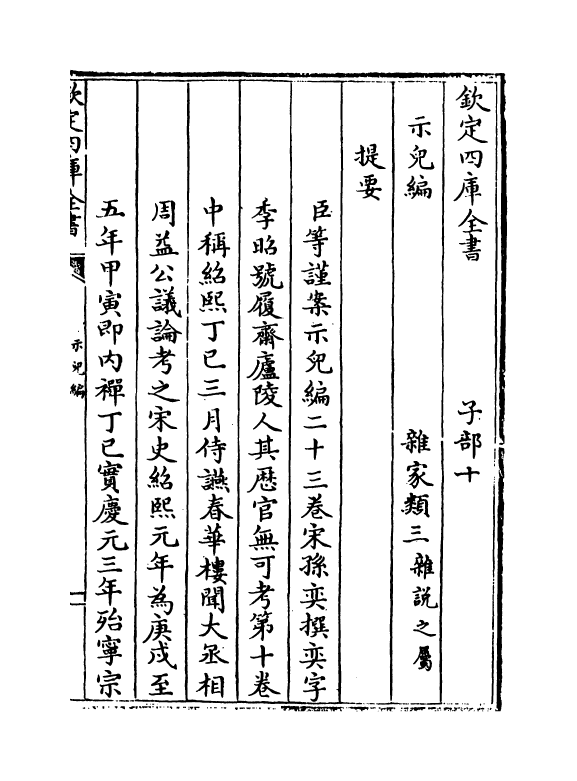 欽定四庫全書　子部十
示兒編　雜家類三雜說之屬
提要
臣等謹案示兒編二十三卷宋孫奕撰奕字
季昭號履齋廬陵人其歴官無可考第十卷
中稱紹熙丁巳三月侍讌春華樓聞大丞相
周益公議論考之宋史紹熙元年為庚戌至
五年甲寅即内禪丁巳實慶元三年殆寧宗
欽定四庫全書
示兒編
一